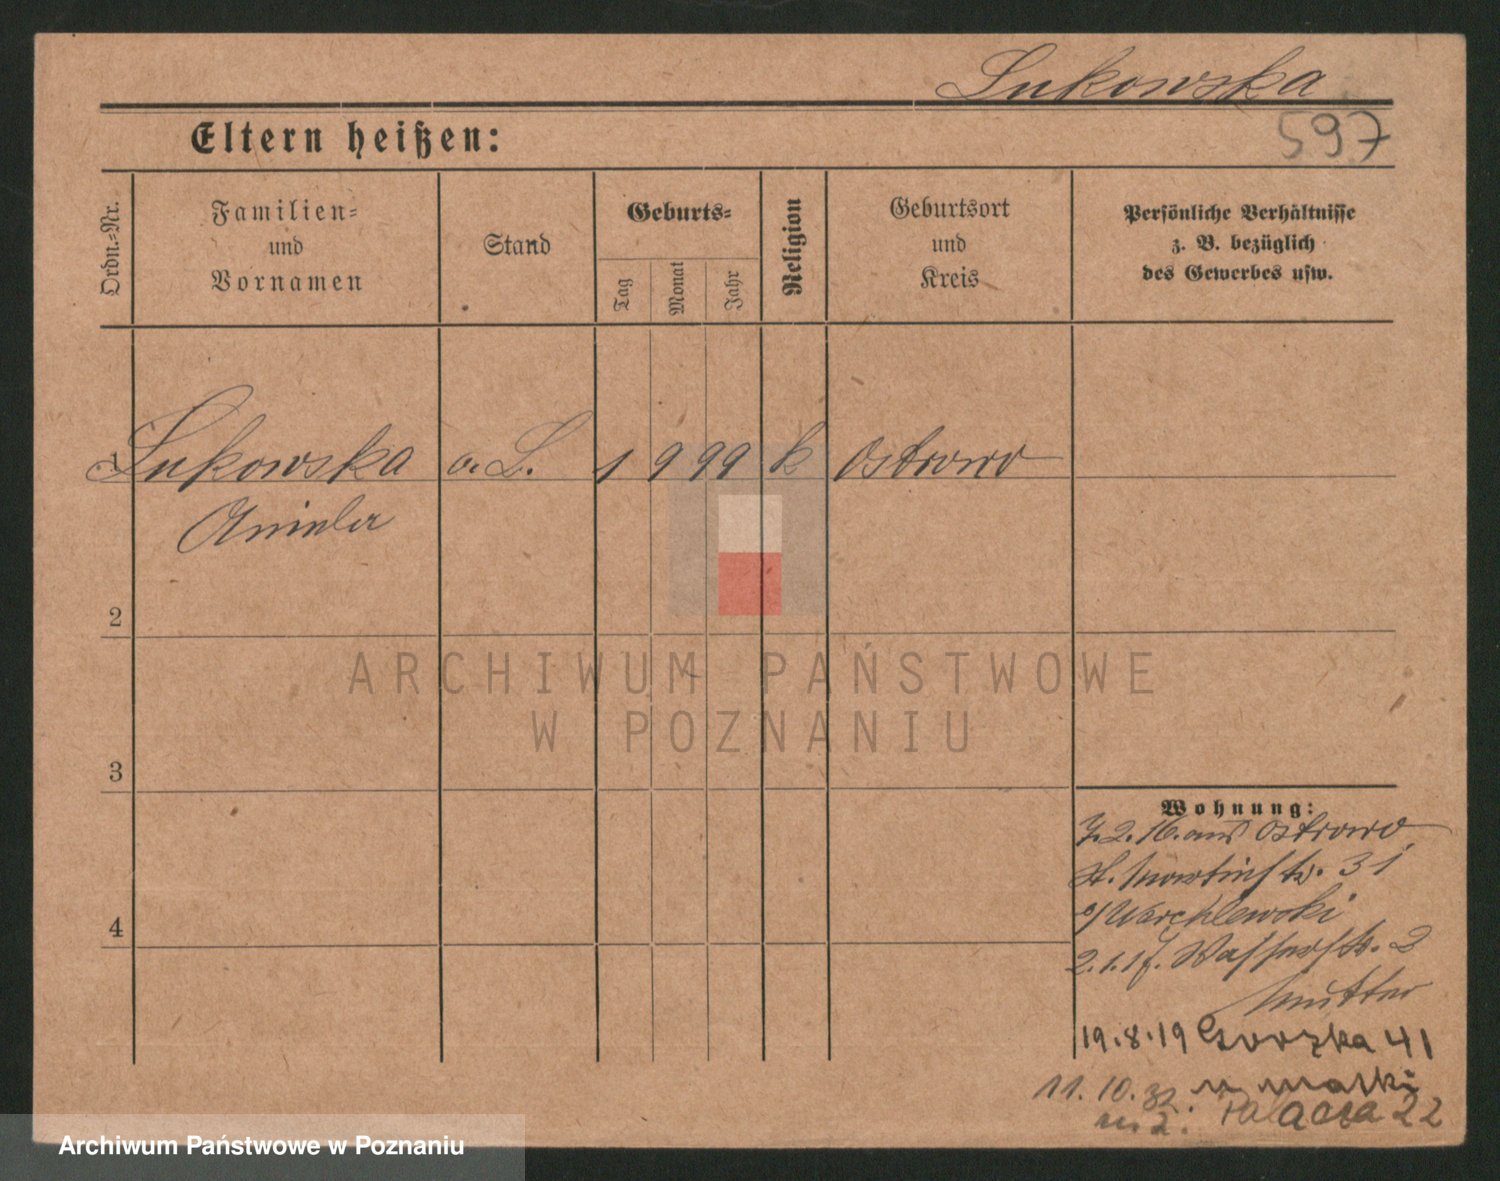 Lukowska
597
Eltern heißen:
Ordn.-Nr.
Familien-
und
Vornamen
Stand
Geburts-
Tag
Monat
Jahr
Religion
Geburtsort
und
Kreis
Persönliche Verhältnisse
z. B. bezüglich
des Gewerbes usw.
1 Lukowska a. L. 1 9 99 k Ostrowo
Aniela
2
3
4
Wohnung:
7.2.16. aus Ostrowo
St. Martinstr. 31
b/ Warchlewski
2.1.17. Wasserstr. 2
Mutter
19.8.19 Gorzka 41
11.10. u matki
Palacza 22
ARCHIWUM PAŃSTWOWE
W POZNANIU
Archiwum Państwowe w Poznaniu